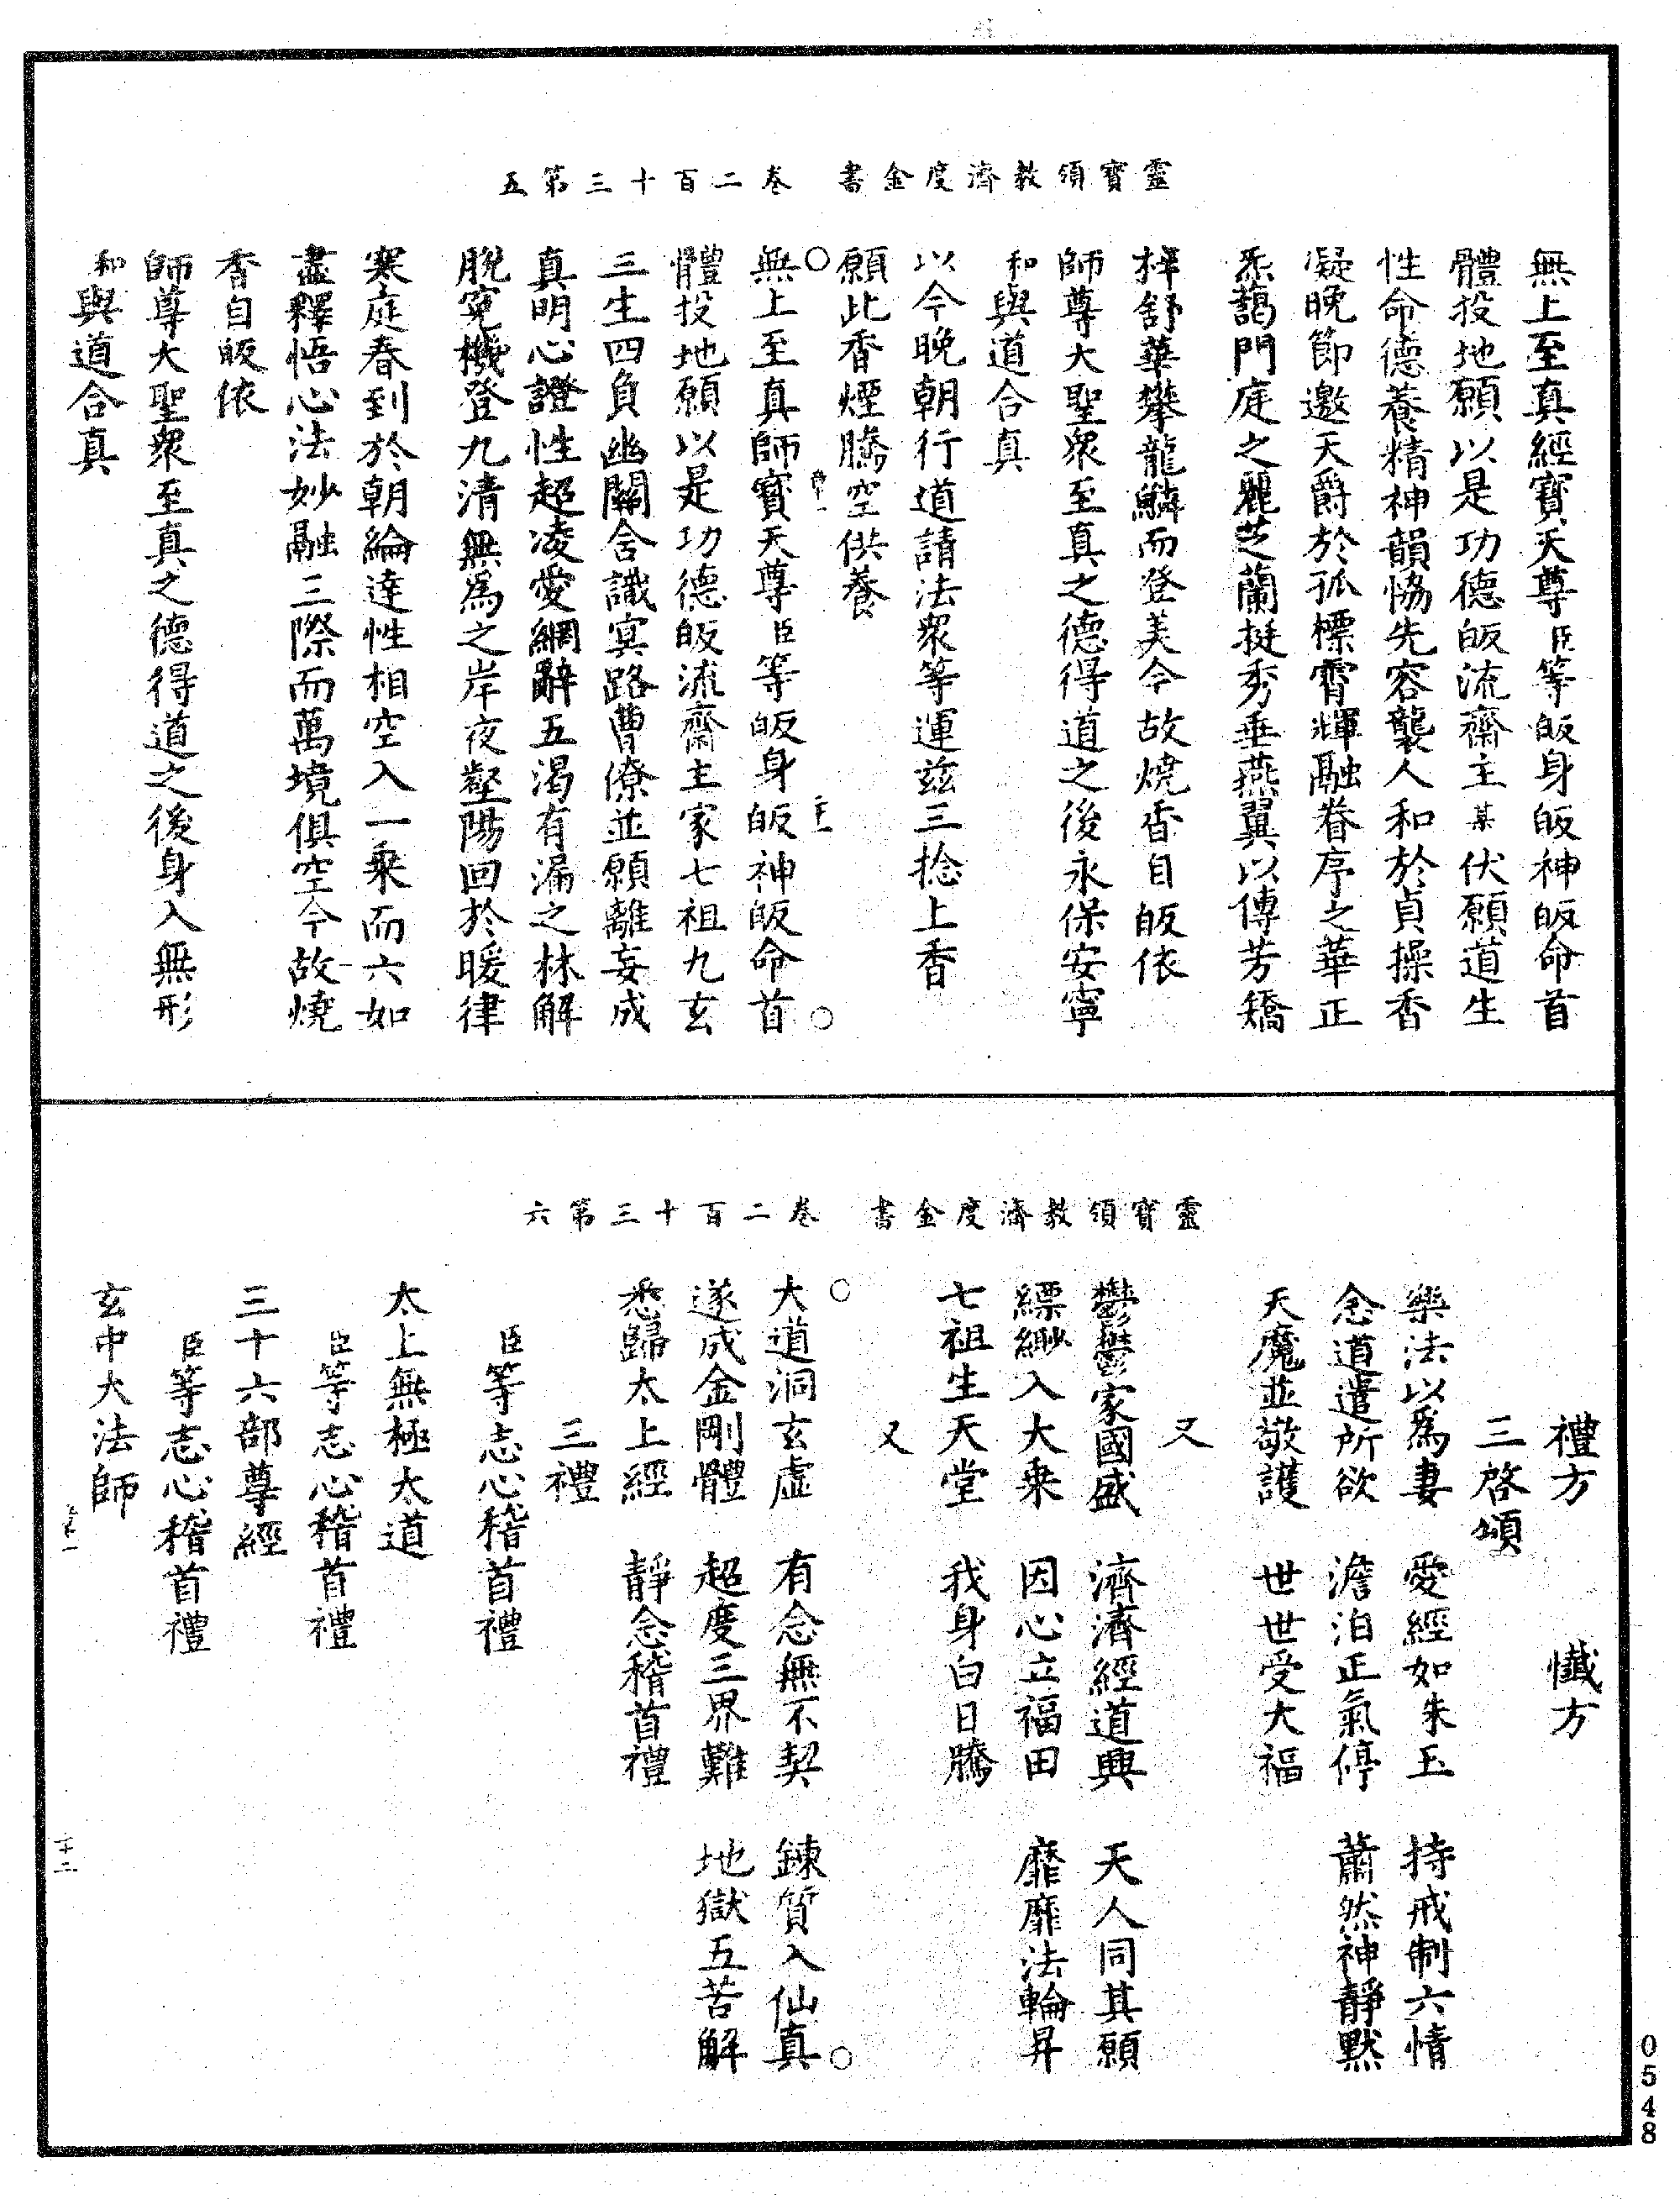 靈寶領教濟度金書　卷二百十三第五
無上至真經寶天尊臣等皈身皈神皈命首
體投地願以是功德皈流齋主某伏願道生
性命德養精神韻恊先容襲人和於貞操香
凝晚節邀天爵於孤標霄輝融眷序之華正
炁藹門庭之麗芝蘭挺秀垂燕翼以傳芳矯
梓舒華攀龍鱗而登美今故燒香自皈依
師尊大聖衆至真之德得道之後永保安寧
和與道合真
以今晚朝行道請法衆等運兹三捻上香
願此香煙騰空供養
無上至真師寶天尊臣等皈身皈神皈命首
體投地願以是功德皈流齋主家七祖九玄
三生四負幽關含識冥路曹僚並願離妄成
真明心證性超凌愛網辭五濁有漏之林解
脫寃機登九清無爲之岸夜壑陽回於暖律
寒庭春到於朝綸達性相空入一乗而六如
盡釋悟心法妙融三際而萬境俱空今故燒
香自皈依
師尊大聖衆至真之德得道之後身入無形
和與道合真
靈寶領教濟度金書　卷二百十三第六
禮方　懺方
三啓頌
樂法以爲妻　愛經如朱玉　持戒制六情
念道遣所欲　澹泊正氣停　蕭然神靜默
天魔並敬護　世世受大福
又
鬱鬱家國盛　濟濟經道興　天人同其願
縹緲入大乗　因心立福田　靡靡法輪昇
七祖生天堂　我身白日騰
又
大道洞玄虛　有念無不契　鍊質入仙真
遂成金剛體　超度三界難　地獄五苦解
悉歸太上經　靜念稽首禮
三禮
臣等志心稽首禮
太上無極大道
臣等志心稽首禮
三十六部尊經
臣等志心稽首禮
玄中大法師
二十二
0548